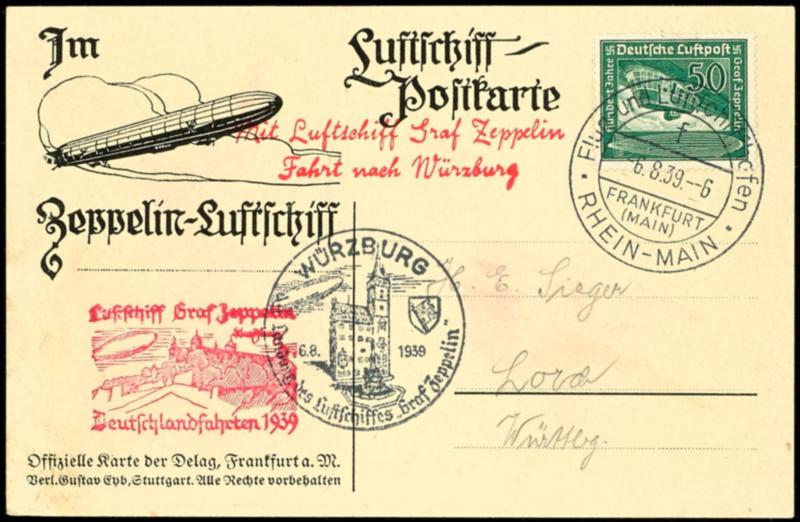 Im
Luftschiff-
Postkarte
Mit Luftschiff Graf Zeppelin
Fahrt nach Würzburg
Zeppelin-Luftschiff
Deutsche Luftpost
50
Hundert Jahre
Graf Zeppelin
Flug- und Luftschiffhafen
f
-6.8.39.-6
FRANKFURT
(MAIN)
RHEIN-MAIN
WÜRZBURG
6.8. 1939
Landung des Luftschiffes „Graf Zeppelin“
H. E. Sieger
Lorch
Württbg.
Luftschiff Graf Zeppelin
Deutschlandfahrten 1939
Offizielle Karte der Delag, Frankfurt a. M.
Verl. Gustav Eyb, Stuttgart. Alle Rechte vorbehalten